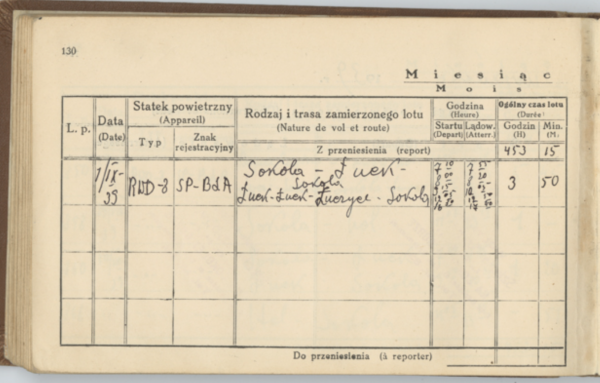 130
Miesiąc
Mois
L. p.
Data
(Date)
Statek powietrzny
(Appareil)
Typ
Znak
rejestracyjny
Rodzaj i trasa zamierzonego lotu
(Nature de vol et route)
Godzina
(Heure)
Startu
(Depart)
Lądow.
(Atterr.)
Ogólny czas lotu
(Durés)
Godzin
(H)
Min.
(M.
Z przeniesienia (report)
453 15
1/IX-
39
RWD-8
SP-BLA
Sokola - Łuck -
Sokola
Łuck-Łuck- - Sokola
3 50
Do przeniesienia (à reporter)